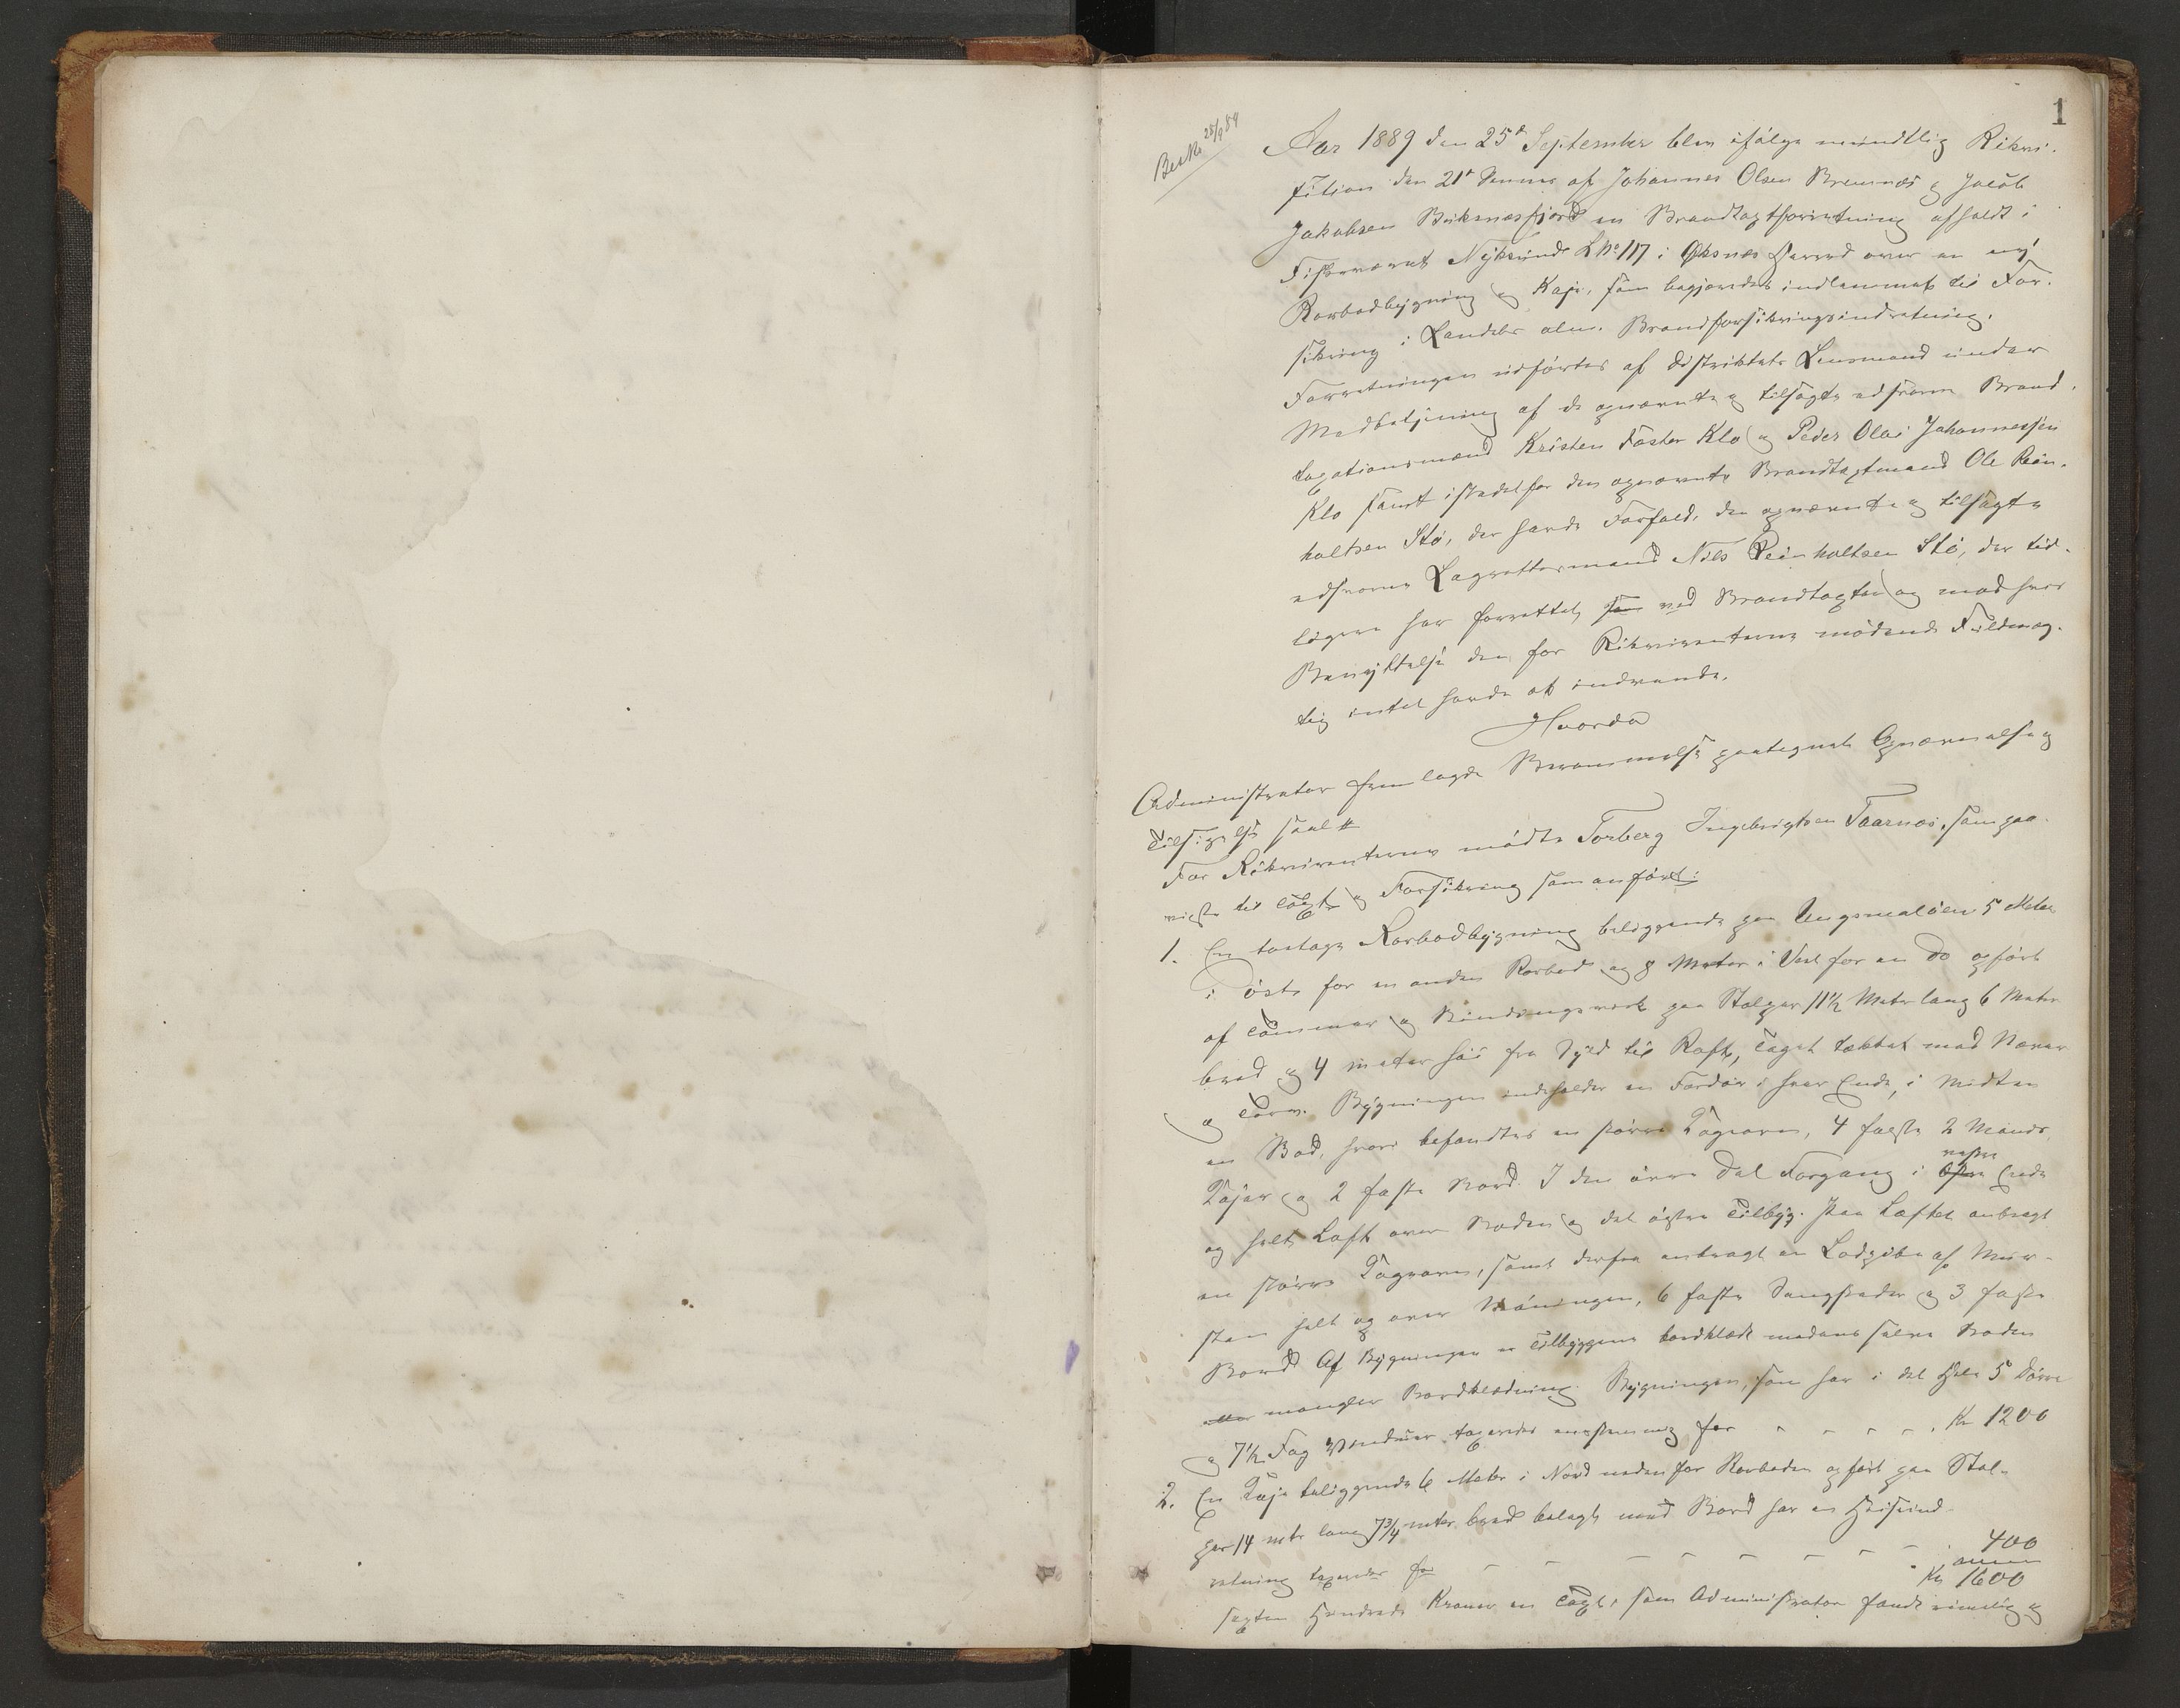 1
Beskr. 25/9 89
Aar 1889 den 25de September blev ifølge mundtlig Rikvi-
sition den 21de dennes af Johannes Olsen Bremnæs og Jacob
Jakobsen Buksnæsfjord en Brandtaxtforretning afholdt i
Fiskeværet Nyksund L.No 117 i Øksnæs Herred over en ny
Rorbodbygning og Kaje, som begjæredes indlemmet til For-
sikring i Landets alm. Brandforsikringsindretning.
Forretningen udførtes af Distriktets Lensmand under
Medbetjening af de opnævnte og tilsagte edsvorne Brand-
taxationsmænd Kristen Falster Klo og Peder Olai Johannessen
Klo samt istedetfor den opnævnte Brandtaxtmand Ole Rein-
holtsen Stø, der havde Forfald, den opnævnte og tilsagte
edsvorne Lagrettesmand Nils Reinholtsen Stø, der tid-
ligere har forrettet som ved Brandtaxter og mod hvis
Benyttelse den for Rikvirenterne mødende Fuldmæg-
tig intet havde at indvende.
Hvorda
Administrator fremlagde Berammelse paategnet Opnævnelse og
Tilsigelse saal.
For Rikvirenterne mødte Torberg Ingebrigtsen Taarnæs, som paa-
viste til Taxt og Forsikring som anført:
1. En toetages Rorbodbygning beliggende paa Ungsmaløen 5 Meter
i Øst for en anden Rorbod og 8 Meter i Vest for en Do opført
af Tømmer og Bindingsværk paa Stolper 11½ Meter lang 6 Meter
bred og 4 meter høi fra Syld til Raft, Taget tækket med Næver
og Torv. Bygningen indeholder en Fordør i hver Ende, i Midten
en Bod, hvori befandtes en større Kogeovn, 4 faste 2 Mands
Køjer og 2 faste Bord. I den øvre Del Forgang i østre vestre Ende
og helt Loft over Boden og det østre Tilbyg. Paa Loftet anbragt
en større Kogeovn, samt derfra anbragt en Lodpibe af Mur-
sten helt op over Møningen, 6 faste Sengesteder og 3 faste
Bord. Af Bygningen er Tilbyggene bordklædt medens selve Boden
mangler Bordklædning. Bygningen, som har i det Hele 5 Døre
og 7½ Fag Vinduer taxeredes enstemmig for - - - - Kr 1200
2. En Kaje beliggende 6 Meter i Nord nedenfor Rorboden opført paa Stol-
per 14 mtr lang 7¾ mtr bred belagt med Bord har en Heiseind-
retning taxeredes for - - - - - - - - 400
Kr 1600
sexten Hundrede Kroner en Taxt, som Administrator fandt rimelig og